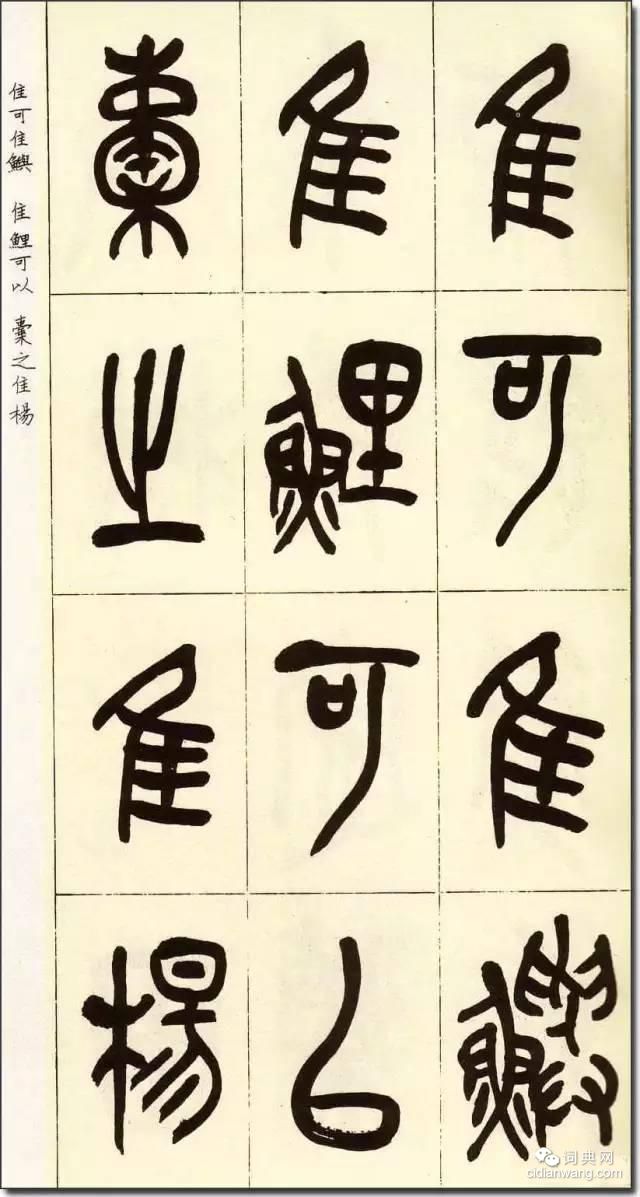 隹可隹鱮
隹鯉可以
橐之隹楊
隹可隹鱮 隹鯉可以 橐之隹楊
词典网
cidianwang.com